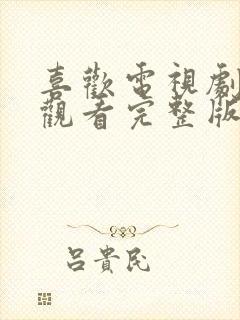 喜歡電視劇
觀看完整版
呂貴民